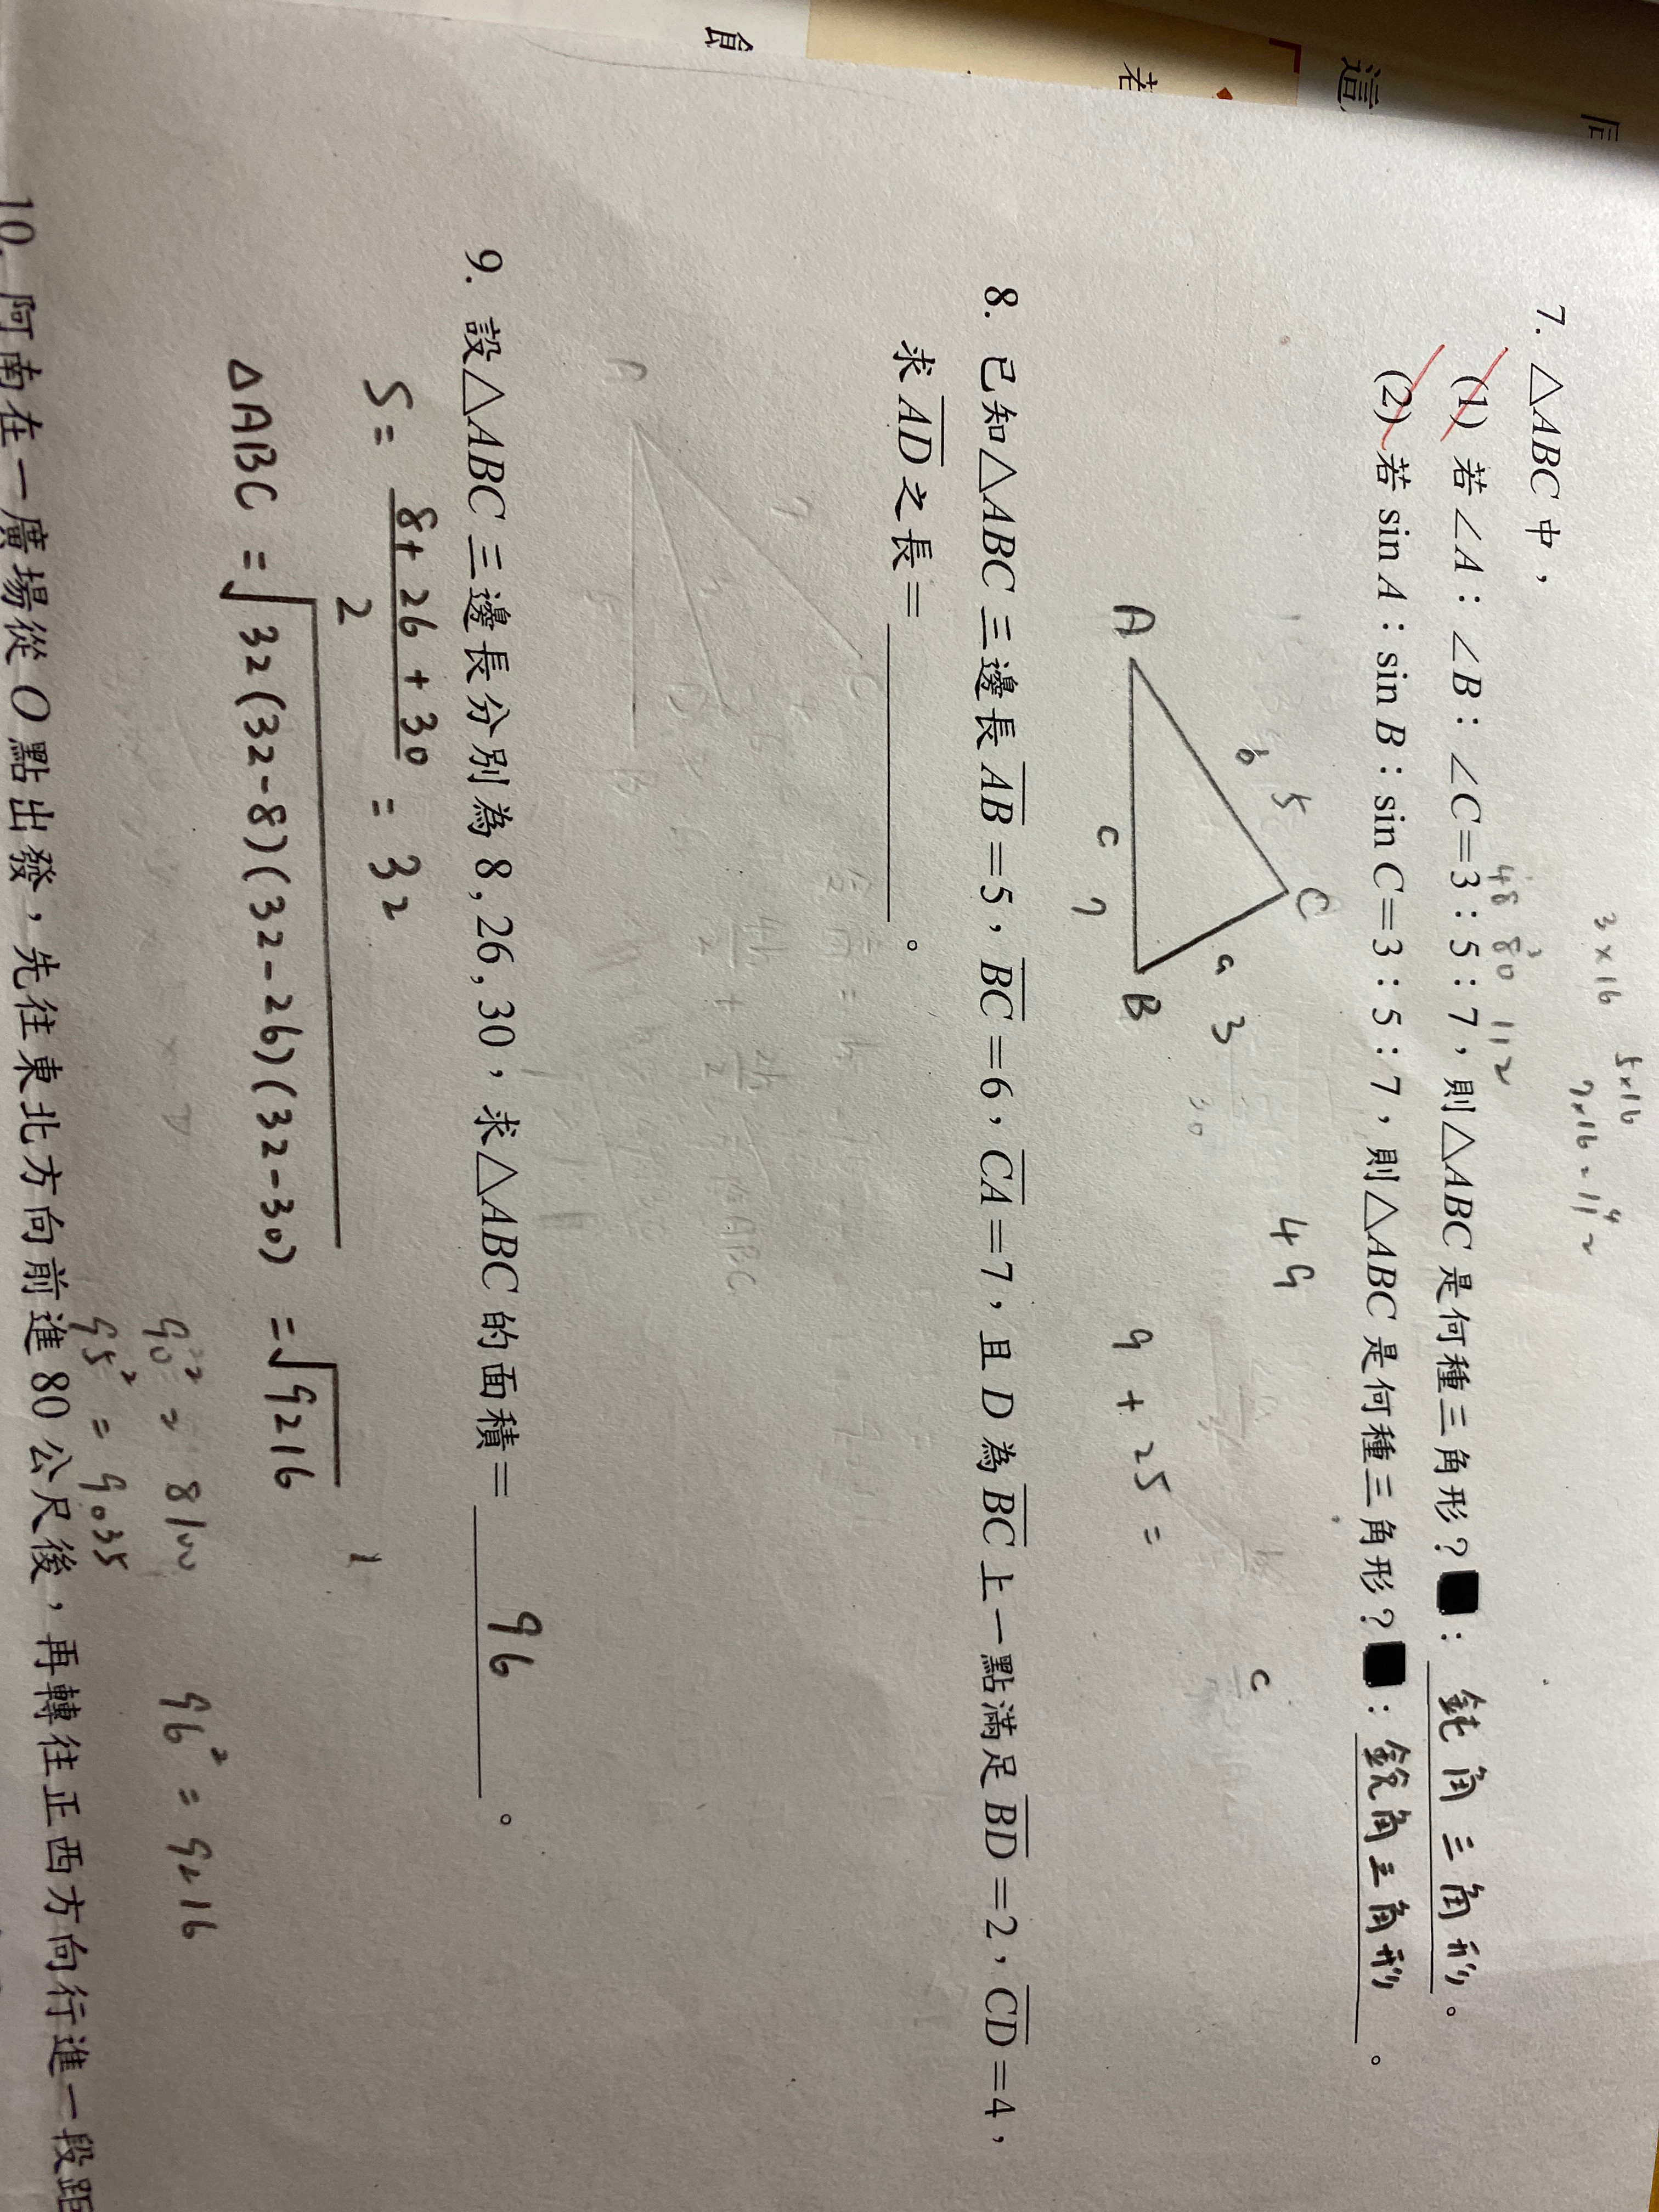 3×16 5×16
7×16=112
7. △ABC 中，
48 80 112
(1) 若∠A：∠B：∠C=3：5：7，則△ABC 是何種三角形？■：鈍角三角形。
(2) 若 sin A：sin B：sin C=3：5：7，則△ABC 是何種三角形？■：銳角三角形。
C
b 5
a 3
A
B
c 7
49
9 + 25 =
c
8. 已知△ABC 三邊長 AB=5，BC=6，CA=7，且 D 為 BC 上一點滿足 BD=2，CD=4，
求 AD 之長= 。
9. 設△ABC 三邊長分別為 8, 26, 30，求△ABC 的面積= 96 。
S= 8+26+30 / 2 = 32
△ABC = √32(32-8)(32-26)(32-30) = √9216
90² = 8100
96² = 9216
95² = 9035
10. 阿南在一廣場從 O 點出發，先往東北方向前進 80 公尺後，再轉往正西方向行進一段距
食
若
這